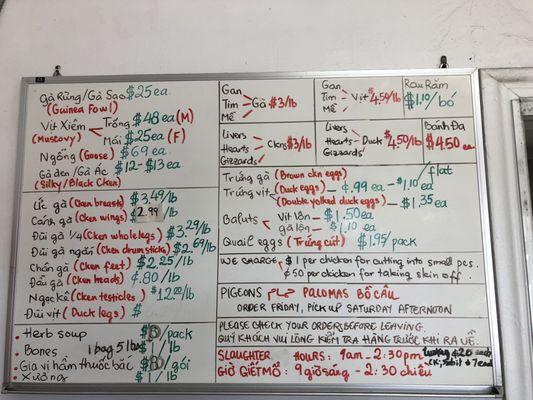 gà Rừng/Gà Sao $25 ea
(Guinea Fowl)
Vịt Xiêm Trống $48 ea (M)
(Muscovy) Mái $25 ea (F)
Ngỗng (Goose) $69 ea
Gà đen/Gà Ác $12-$13 ea
(Silky/Black Cken)
Ức gà (Cken breast) $3.49/lb
Cánh gà (Cken wings) $2.99/lb
Đùi gà 1/4 (Cken whole legs) $3.29/lb
Đùi gà ngắn (Cken drumsticks) $2.69/lb
Chân gà (Cken feet) $2.25/lb
Đầu gà (Cken heads) ¢.80/lb
Ngọc kê (Cken testicles) $12.00/lb
Đùi vịt (Duck legs) $ /lb
Herb soup $6/pack
Bones 1 bag 5 lbs $1/lb
Gia vị hầm thuốc bắc $ /gói
Xương $1/lb
Gan
Tim Gà $3/lb
Mề
Gan
Tim Vịt $4.50/lb
Mề
Rau Răm
$1.10/bó
Livers
Hearts Ckens $3/lb
Gizzards
Livers
Hearts Duck $4.50/lb
Gizzards
Bánh Đa
$4.50
Trứng gà (Brown ckn eggs) /flat
Trứng vịt (Duck eggs) ¢.99 ea - $1.10/ea
(Double yolked duck eggs) $1.35 ea
Baluts Vịt lộn - $1.50 ea
gà lộn - $1.10 ea
Quail eggs (Trứng cút) $1.95/pack
WE CHARGE $1 per chicken for cutting into small pcs.
¢50 per chicken for taking skin off.
PIGEONS حمام PALOMAS BỒ CÂU
ORDER FRIDAY, PICK UP SATURDAY AFTERNOON
PLEASE CHECK YOUR ORDER BEFORE LEAVING.
QUÝ KHÁCH VUI LÒNG KIỂM TRA HÀNG TRƯỚC KHI RA VỀ.
SLAUGHTER HOURS: 9am - 2:30pm
GIỜ GIẾT MỔ: 9 giờ sáng - 2:30 chiều